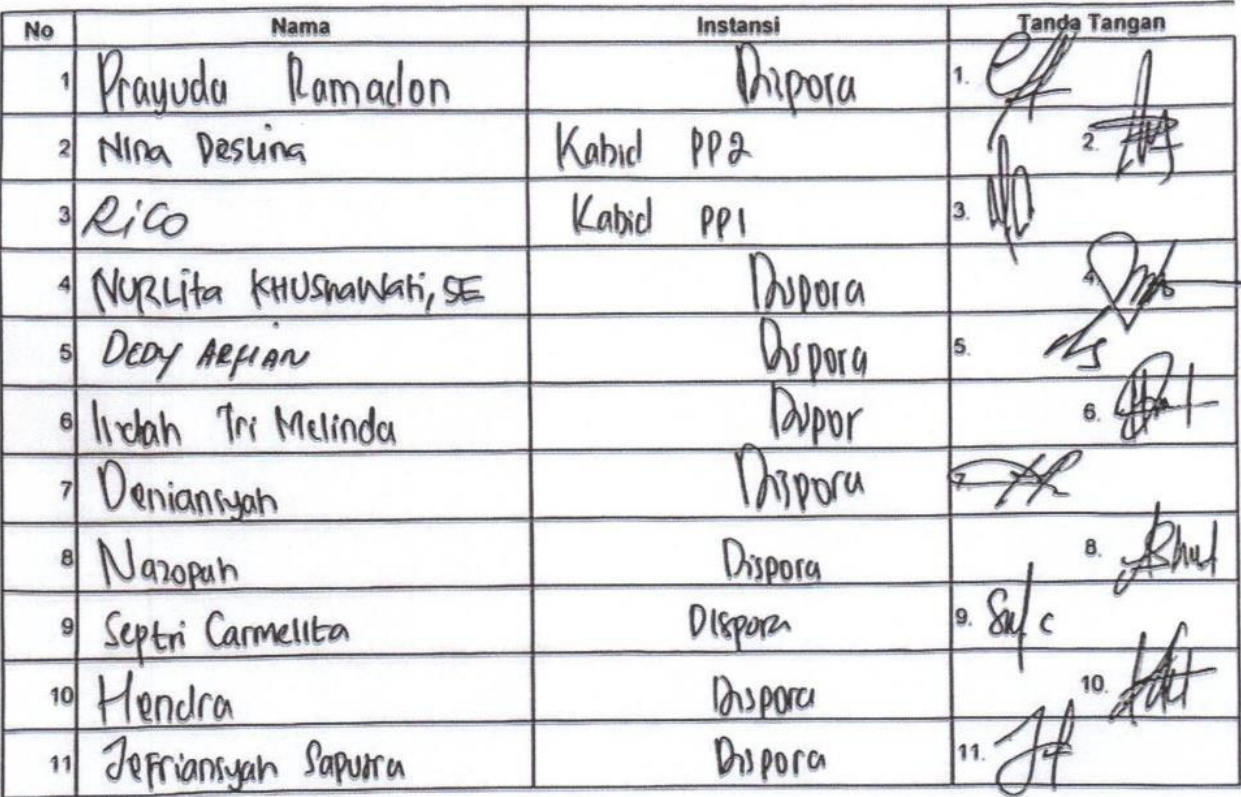 No Nama Instansi Tanda Tangan
1 Prayuda Ramadon Dispora 1.
2 Nina Deslina Kabid PP2 2.
3 Rico Kabid PP1 3.
4 NURLita KHUSnaWati, SE Dispora 4.
5 DEDY ARFIAN Dispora 5.
6 Indah Tri Melinda Dispor 6.
7 Deniansyah Dispora 7.
8 Nazopah Dispora 8.
9 Septri Carmelita Dispora 9.
10 Hendra Dispora 10.
11 Jefriansyah Saputra Dispora 11.